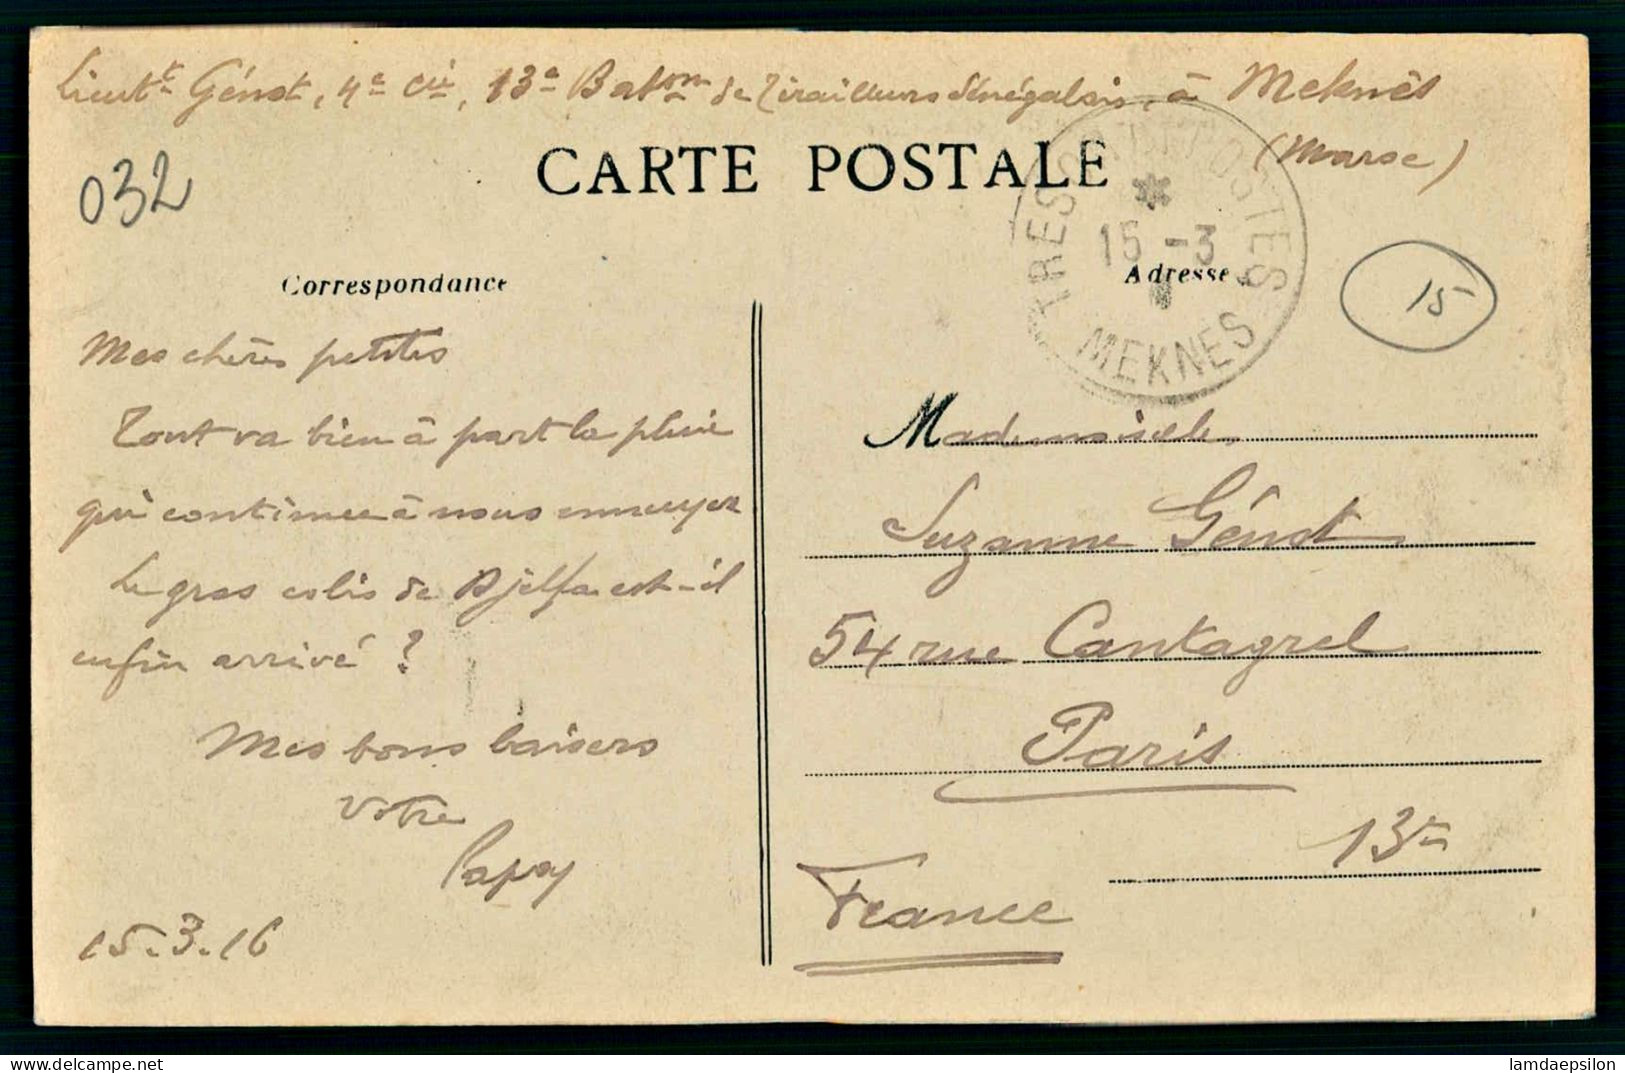 Lieutt Génot, 4e Cie, 13e Batonn de Tirailleurs Sénégalais, à Meknès
(Maroc)
032
CARTE POSTALE
TRESOR ET POSTES
*
15 -3
MEKNES
15
Correspondance
Adresse
Mes chères petites
Tout va bien à part la pluie
qui continue à nous ennuyer
Le gros colis de Djelfa est-il
enfin arrivé ?
Mes bons baisers
Votre
Papa
15.3.16
Mademoiselle
Suzanne Génot
54 rue Cantagrel
Paris
13e
France
lamdaepsilon
www.delcampe.net